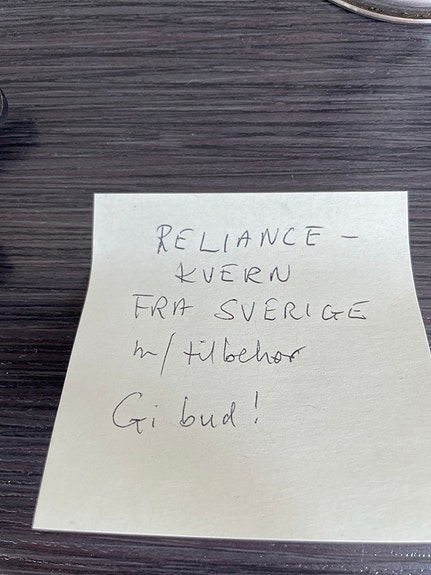 RELIANCE -
KVERN
FRA SVERIGE
m/tilbehør
Gi bud!